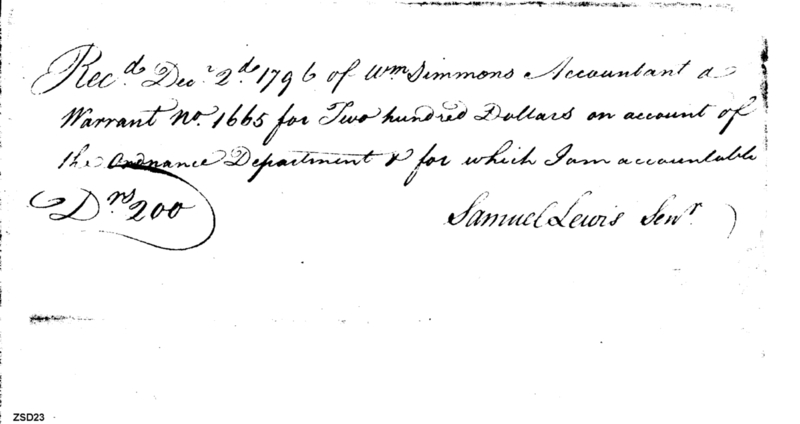 Recd. Decr. 2d. 1796 of Wm Simmons Accountant a
Warrant No. 1665 for Two hundred Dollars on account of
the Ordnance Department & for which I am accountable
Drs 200
Samuel Lewis Senr.
ZSD23